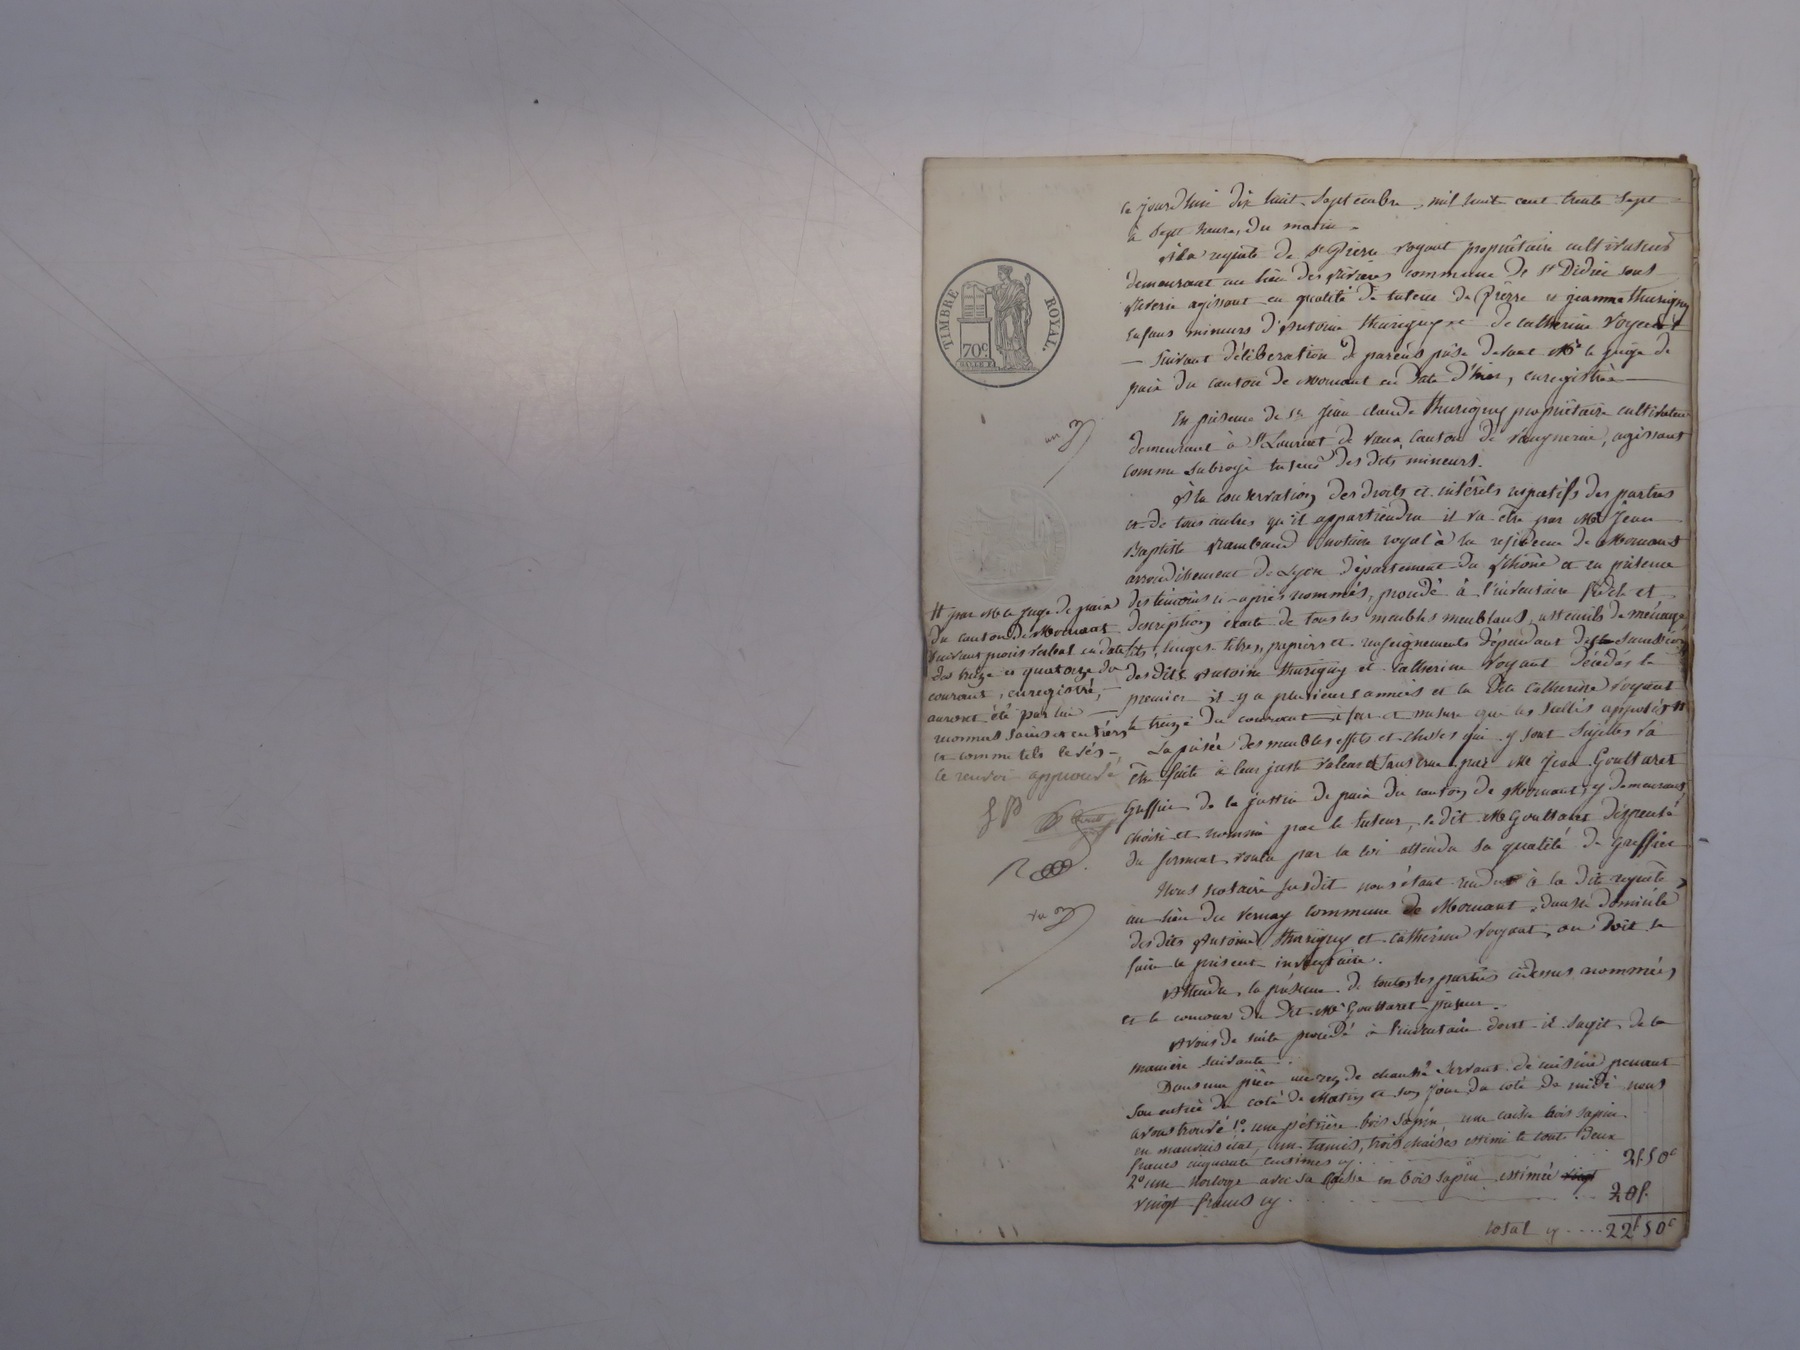 ce jourd'hui dix huit Septembre mil huit cent trente Sept
à Sept heures du matin
A la requete de Sr Pierre Voyant propriétaire cultivateur
demeurant au lieu des Rivières commune de St Didier sous
Riverie agissant en qualité de tuteur de Pierre et jeanne thurigny
enfans mineurs d'Antoine thurigny et de Catherine Voyant
Suivant délibération de parens prise devant Mr le juge de
paix du canton de Mornant en date d'hier, enregistrée
En présence de Sr Jean claude thurigny propriétaire cultivateur
demeurant à St Laurent de Vaux, canton de Vaugneray, agissant
comme subrogé tuteur des dits mineurs.
A la conservation des droits et intérêts respectifs des parties
et de tous autres qu'il appartiendra il va être par Me Jean
Baptiste Rambaud notaire royal à la résidence de Mornant
arrondissement de Lyon département du Rhône et en présence
des témoins ci-après nommés, procédé à l'inventaire fidèle et
description exacte de tous les meubles meublans, ustensils de ménage
linges titres, papiers et renseignements dépendant des successions
des dits Antoine thurigny et Catherine Voyant décédés le
premier il y a plusieurs années et la dite Catherine Voyant
le treize du courant à fur et mesure que les scellés apposés #
La prisée des meubles effets et choses qui y sont sujettes va
être faite à leur juste valeur et sans crue par Me Jean Goultaret
Greffier de la justice de paix du canton de Mornant, y demeurant
choisi et nommé par le tuteur, le dit Me Goultaret dispensé
du serment voulu par la loi attendu sa qualité de Greffier
Nous notaire susdit nous étant rendus à la dite requete
au lieu du Vernay commune de Mornant, dans le domicile
des dits Antoine thurigny et Catherine Voyant, où doit se
faire le présent inventaire.
Attendu la présence de toutes les parties cidessus nommées
et le concour du dit Me Goultaret priseur
Avons de suite procédé à l'inventaire dont il s'agit de la
manière suivante.
Dans une pièce au rez de chaussée servant de cuisine prenant
son entrée du coté de Matin et son jour du coté de midi nous
avons trouvé 1o. une pétrière bois sapin, une caisse bois sapin
en mauvais état, un tamis, trois chaises estimé le tout deux
francs cinquante centimes cy 2f.50c
2o une horloge avec sa caisse en bois sapin estimée vingt
vingt francs cy 20f.
total cy 22f50c
TIMBRE ROYAL.
70c
# par Mr le juge de paix
du canton de Mornant
suivant procès verbal en date
des treize et quatorze du
courant, enregistré,
auront été par lui
reconnus sains et entiers
et comme tels levés
le renvoi approuvé
J P
R